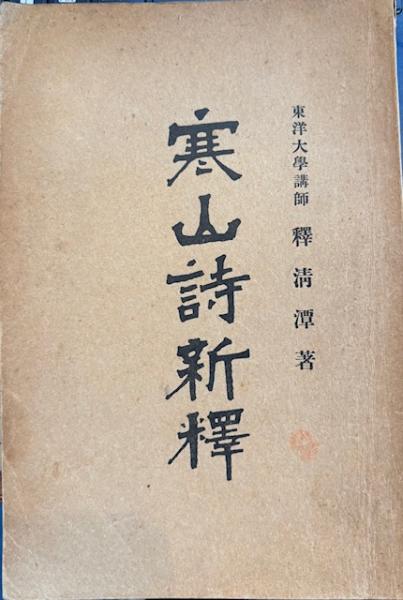 東洋大學講師 釋清潭著
寒山詩新釋